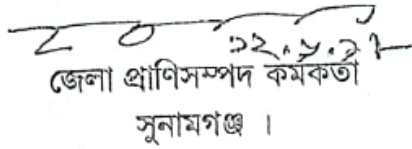 জেলা প্রাণিসম্পদ কর্মকর্তা
সুনামগঞ্জ ।